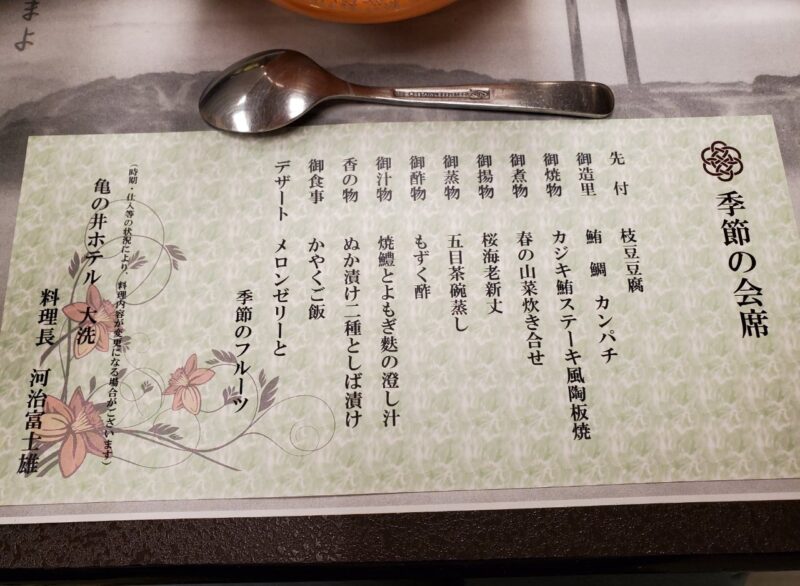 季節の会席
先付 枝豆豆腐
御造里 鮪 鯛 カンパチ
御焼物 カジキ鮪ステーキ風陶板焼
御煮物 春の山菜炊き合せ
御揚物 桜海老新丈
御蒸物 五目茶碗蒸し
御酢物 もずく酢
御汁物 焼鱧とよもぎ麩の澄し汁
香の物 ぬか漬け二種としば漬け
御食事 かやくご飯
デザート メロンゼリーと
季節のフルーツ
(時期・仕入等の状況により、料理内容が変更になる場合がございます)
亀の井ホテル 大洗
料理長 河治富士雄
まよ